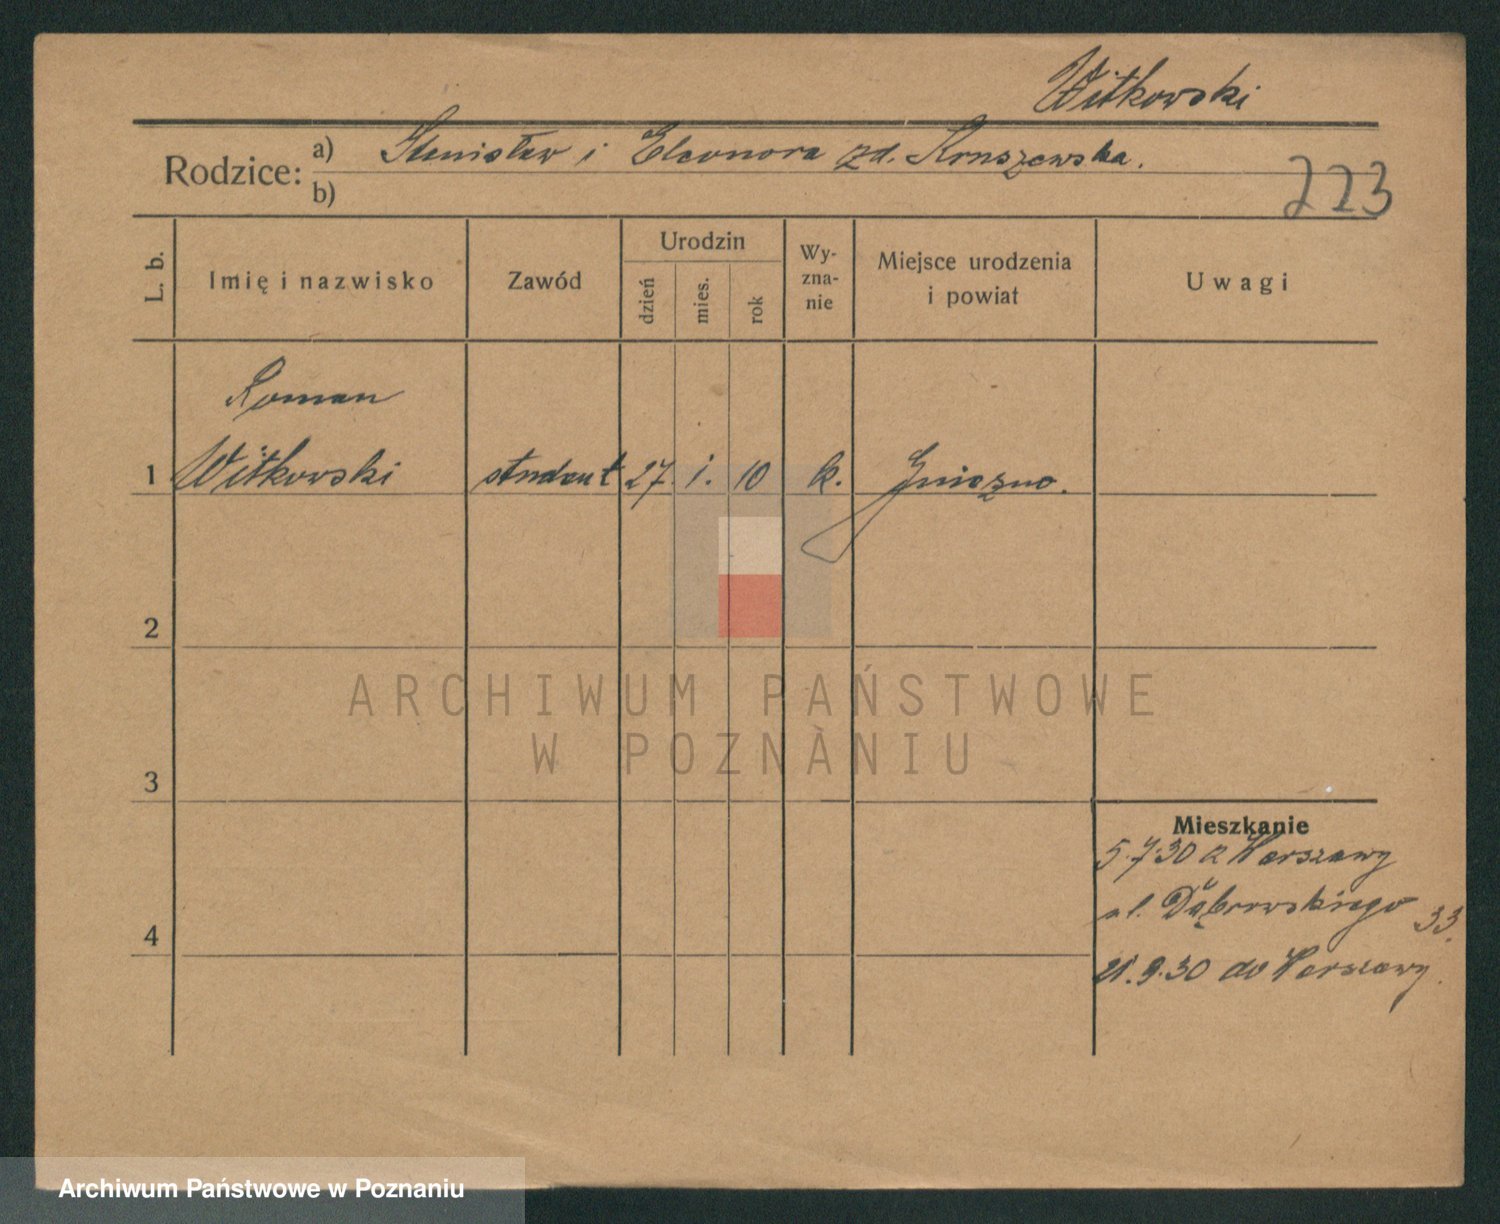 Witkowski
Rodzice: a) Stanisław i Eleonora zd. Kruszewska.
b)
223
L. b.
Imię i nazwisko
Zawód
Urodzin
dzień
mies.
rok
Wy-
zna-
nie
Miejsce urodzenia
i powiat
Uwagi
Roman
1 Witkowski student 27. i. 10 k. Gniezno.
2
3
4
Mieszkanie
5.7.30 z Warszawy
ul. Dąbrowskiego 33.
21.9.30 do Warszawy.
ARCHIWUM PAŃSTWOWE
W POZNANIU
Archiwum Państwowe w Poznaniu